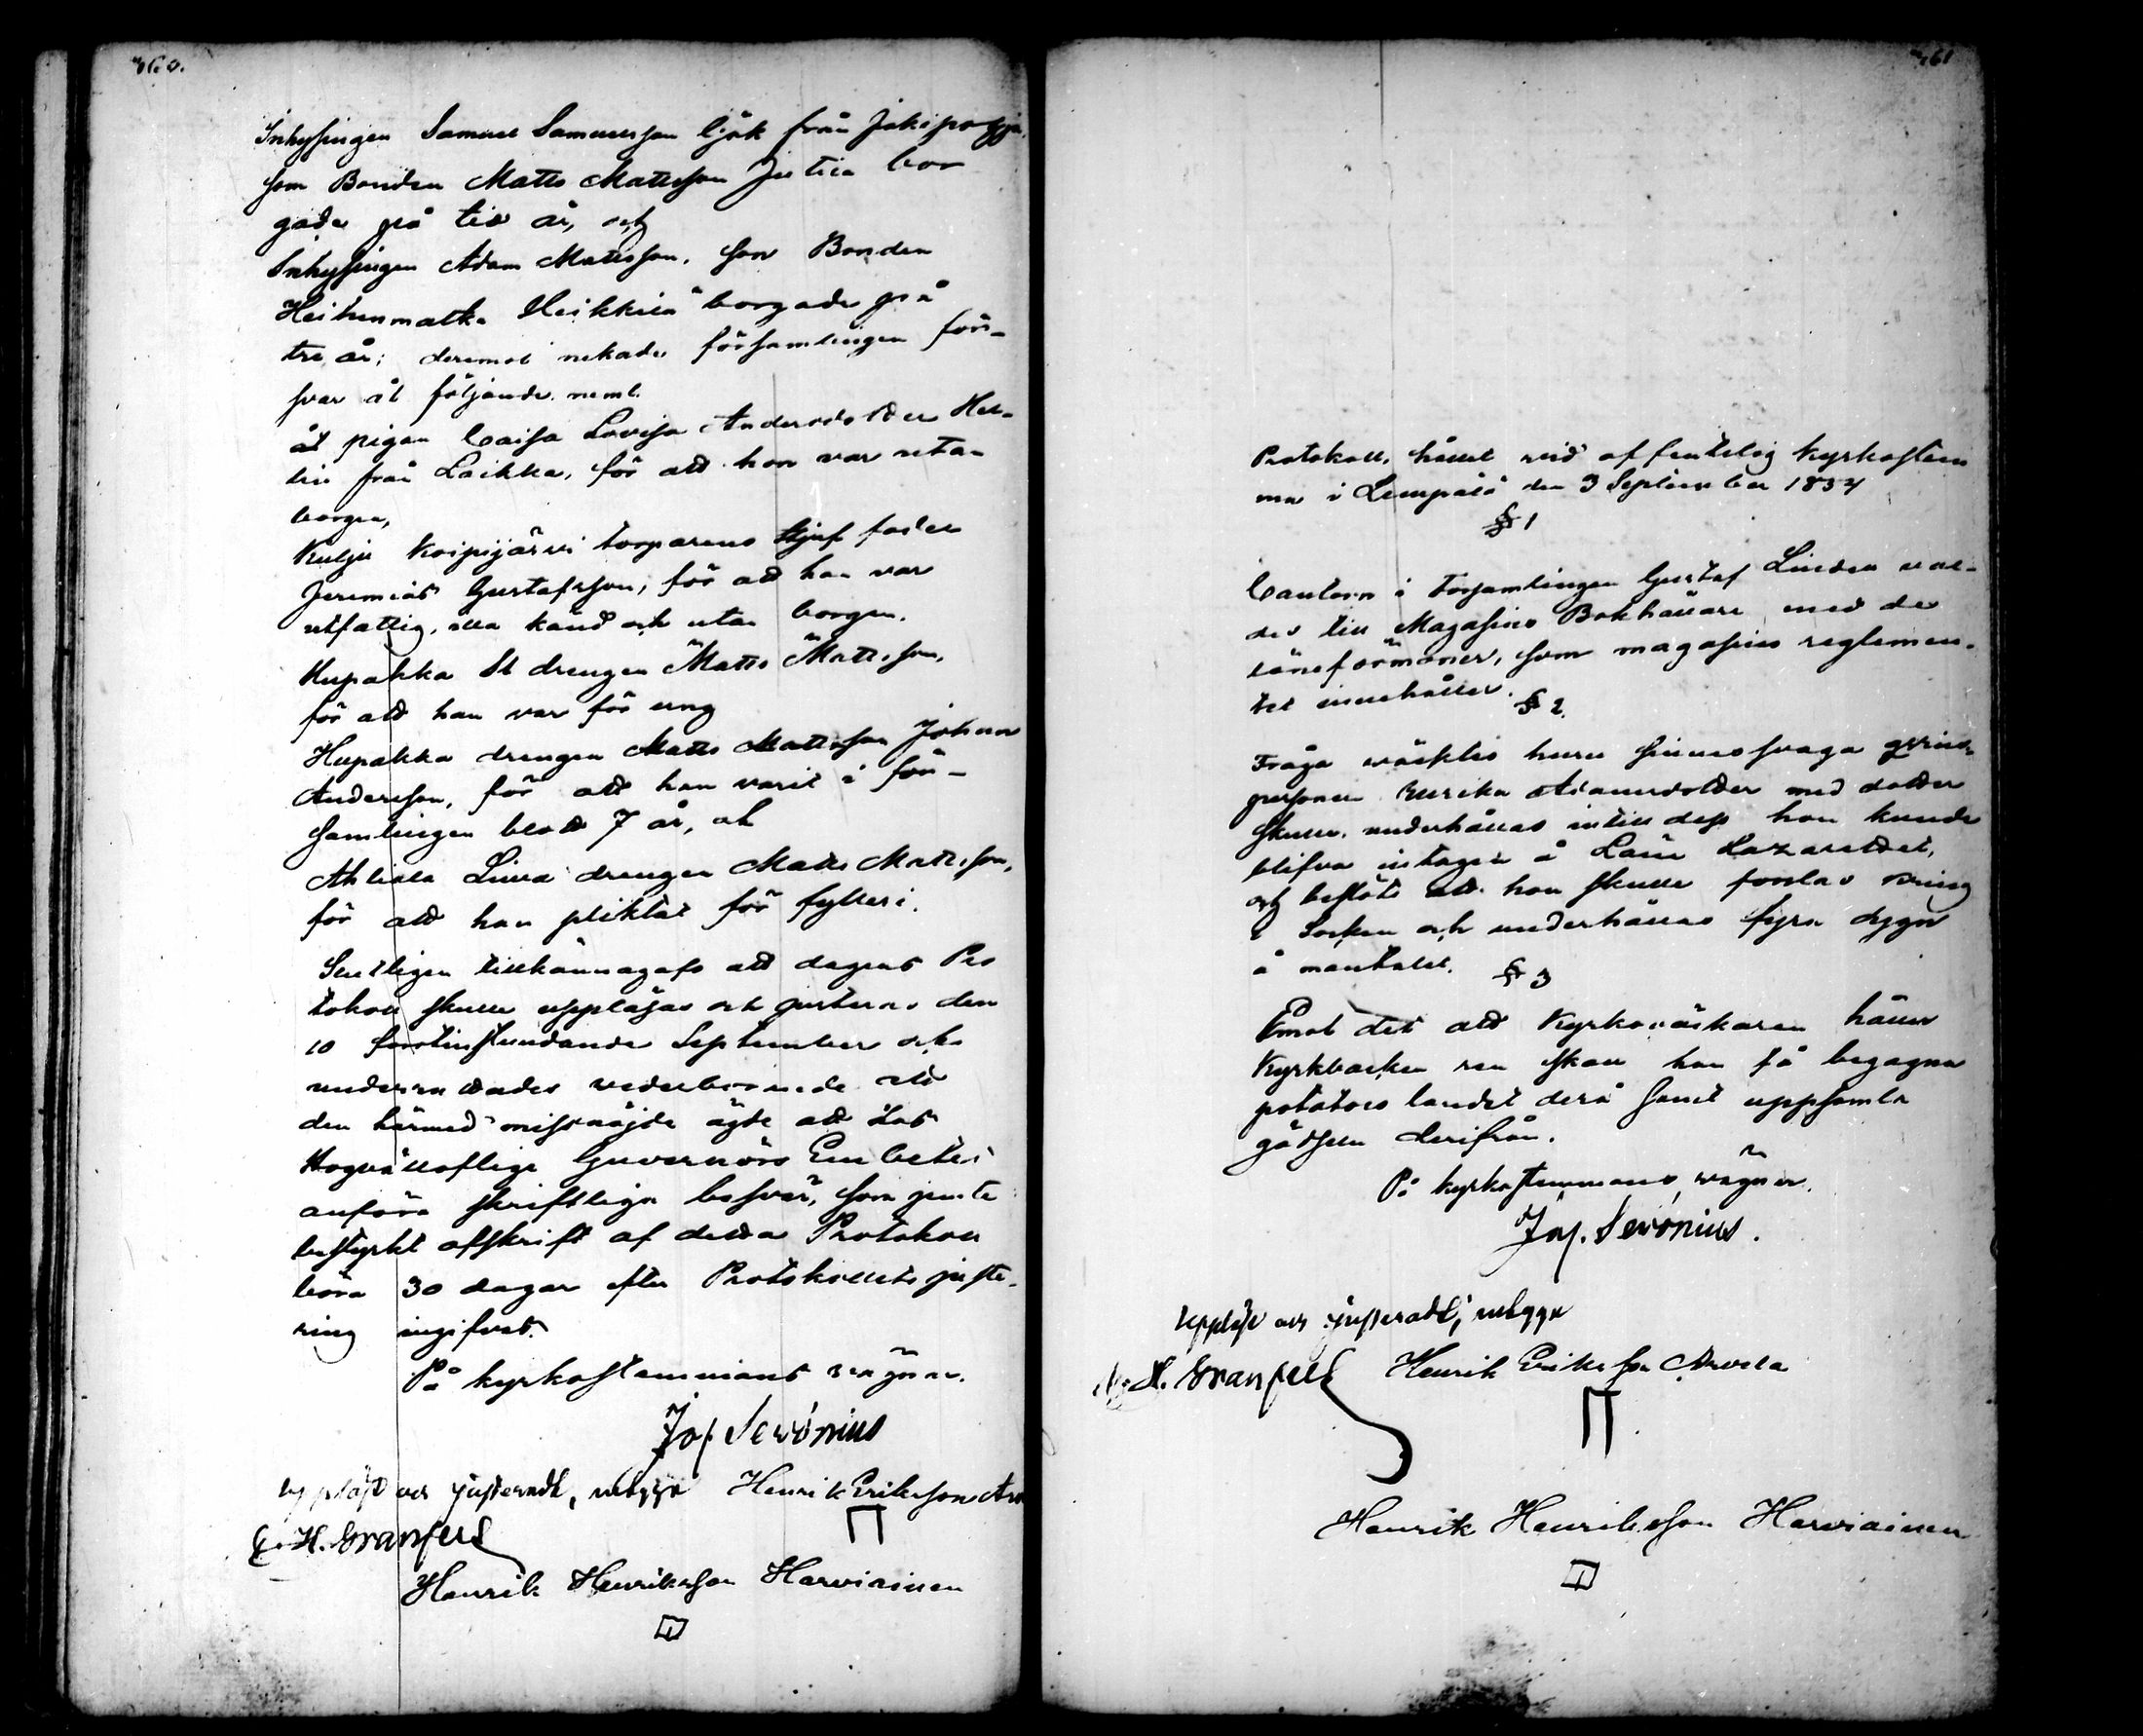 460.
Inhysingen Samuel Samuelsson Sjök från Jokipohja,
som Bonden Matts Mattsson Jutila bor
gade på tio år, och
Inhysingen Adam Mattsson, som Bonden
Heikki Heikkilä borgade på
tre år; deremot nekade församlingen för-
svar åt följande neml.
åt pigan Caisa Lovisa Andersdotter Hel-
lin från Laikka, för att hon var utan
borgen,
Kulju Koipijärvi torparens Stjuf fader
Jeremias Gustafsson, för att han var
utfattig, illa känd och utan borgen.
Hupakka St drengen Matts Mattsson,
för att han var för ung
Hupakka drengen Matts Mattsson Johan
Andersson, för att han varit i för-
samlingen blott 7 år, och
Ahtiala Liuva drengen Matts Mattsson,
för att han pliktat för fylleri.
Slutligen tillkännagafs att dagens Pro
tokoll skulle uppläsas och justeras den
10 förstinstundande September och
underrättades vederbörande att
den härmed missnöjde ägde att hos
Högvällofliga Guvernörs Embetet
anföra skriftliga besvär, som jemte
bestyrkt afskrift af detta Protokoll
böra 30 dagar efter Protokollets juste-
ring ingifvas.
På kyrkostemmans vägnar.
Jos. Serónius
Uppläst och justeradt, intyga Henrik Eriksson Arv
H. Granfelt
Henrik Henriksson Harviainen
461
Protokoll, hållet vid offentelig Kyrkostem
ma i Lempälä den 3 September 1854
§ 1
Cantorn i Församlingen Gustaf Linden val-
des till Magasins Bokhållare med de
löneförmåner, som magasins reglemen-
tet innehåller.
§ 2.
Fråga wäcktes huru sinnessvaga qvins-
personen Ulrika Adamsdotter med dotter
skulle underhållas intill dess hon kunde
blifva intagen å Läne Lazarettet,
och beslöts att hon skulle forslas kring
i Socken och underhållas fyra dygn
å mantalet.
§ 3
Emot det att Kyrkoväktaren håller
Kyrkbacken ren skall han få begagna
potatoes landet derå samt uppsamla
gödseln derifrån.
På kyrkostemmans vägnar.
Jos. Serónius.
Uppläst och justeradt, intyga
H. Granfelt Henrik Eriksson Arvela
Henrik Henriksson Harviainen